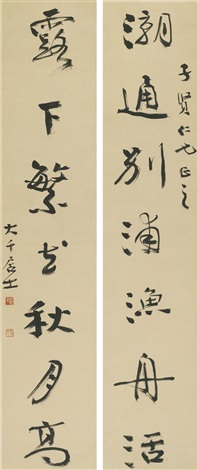 子賢仁兄正之
潮通別浦漁舟活
露下繁臺秋月高
大千居士